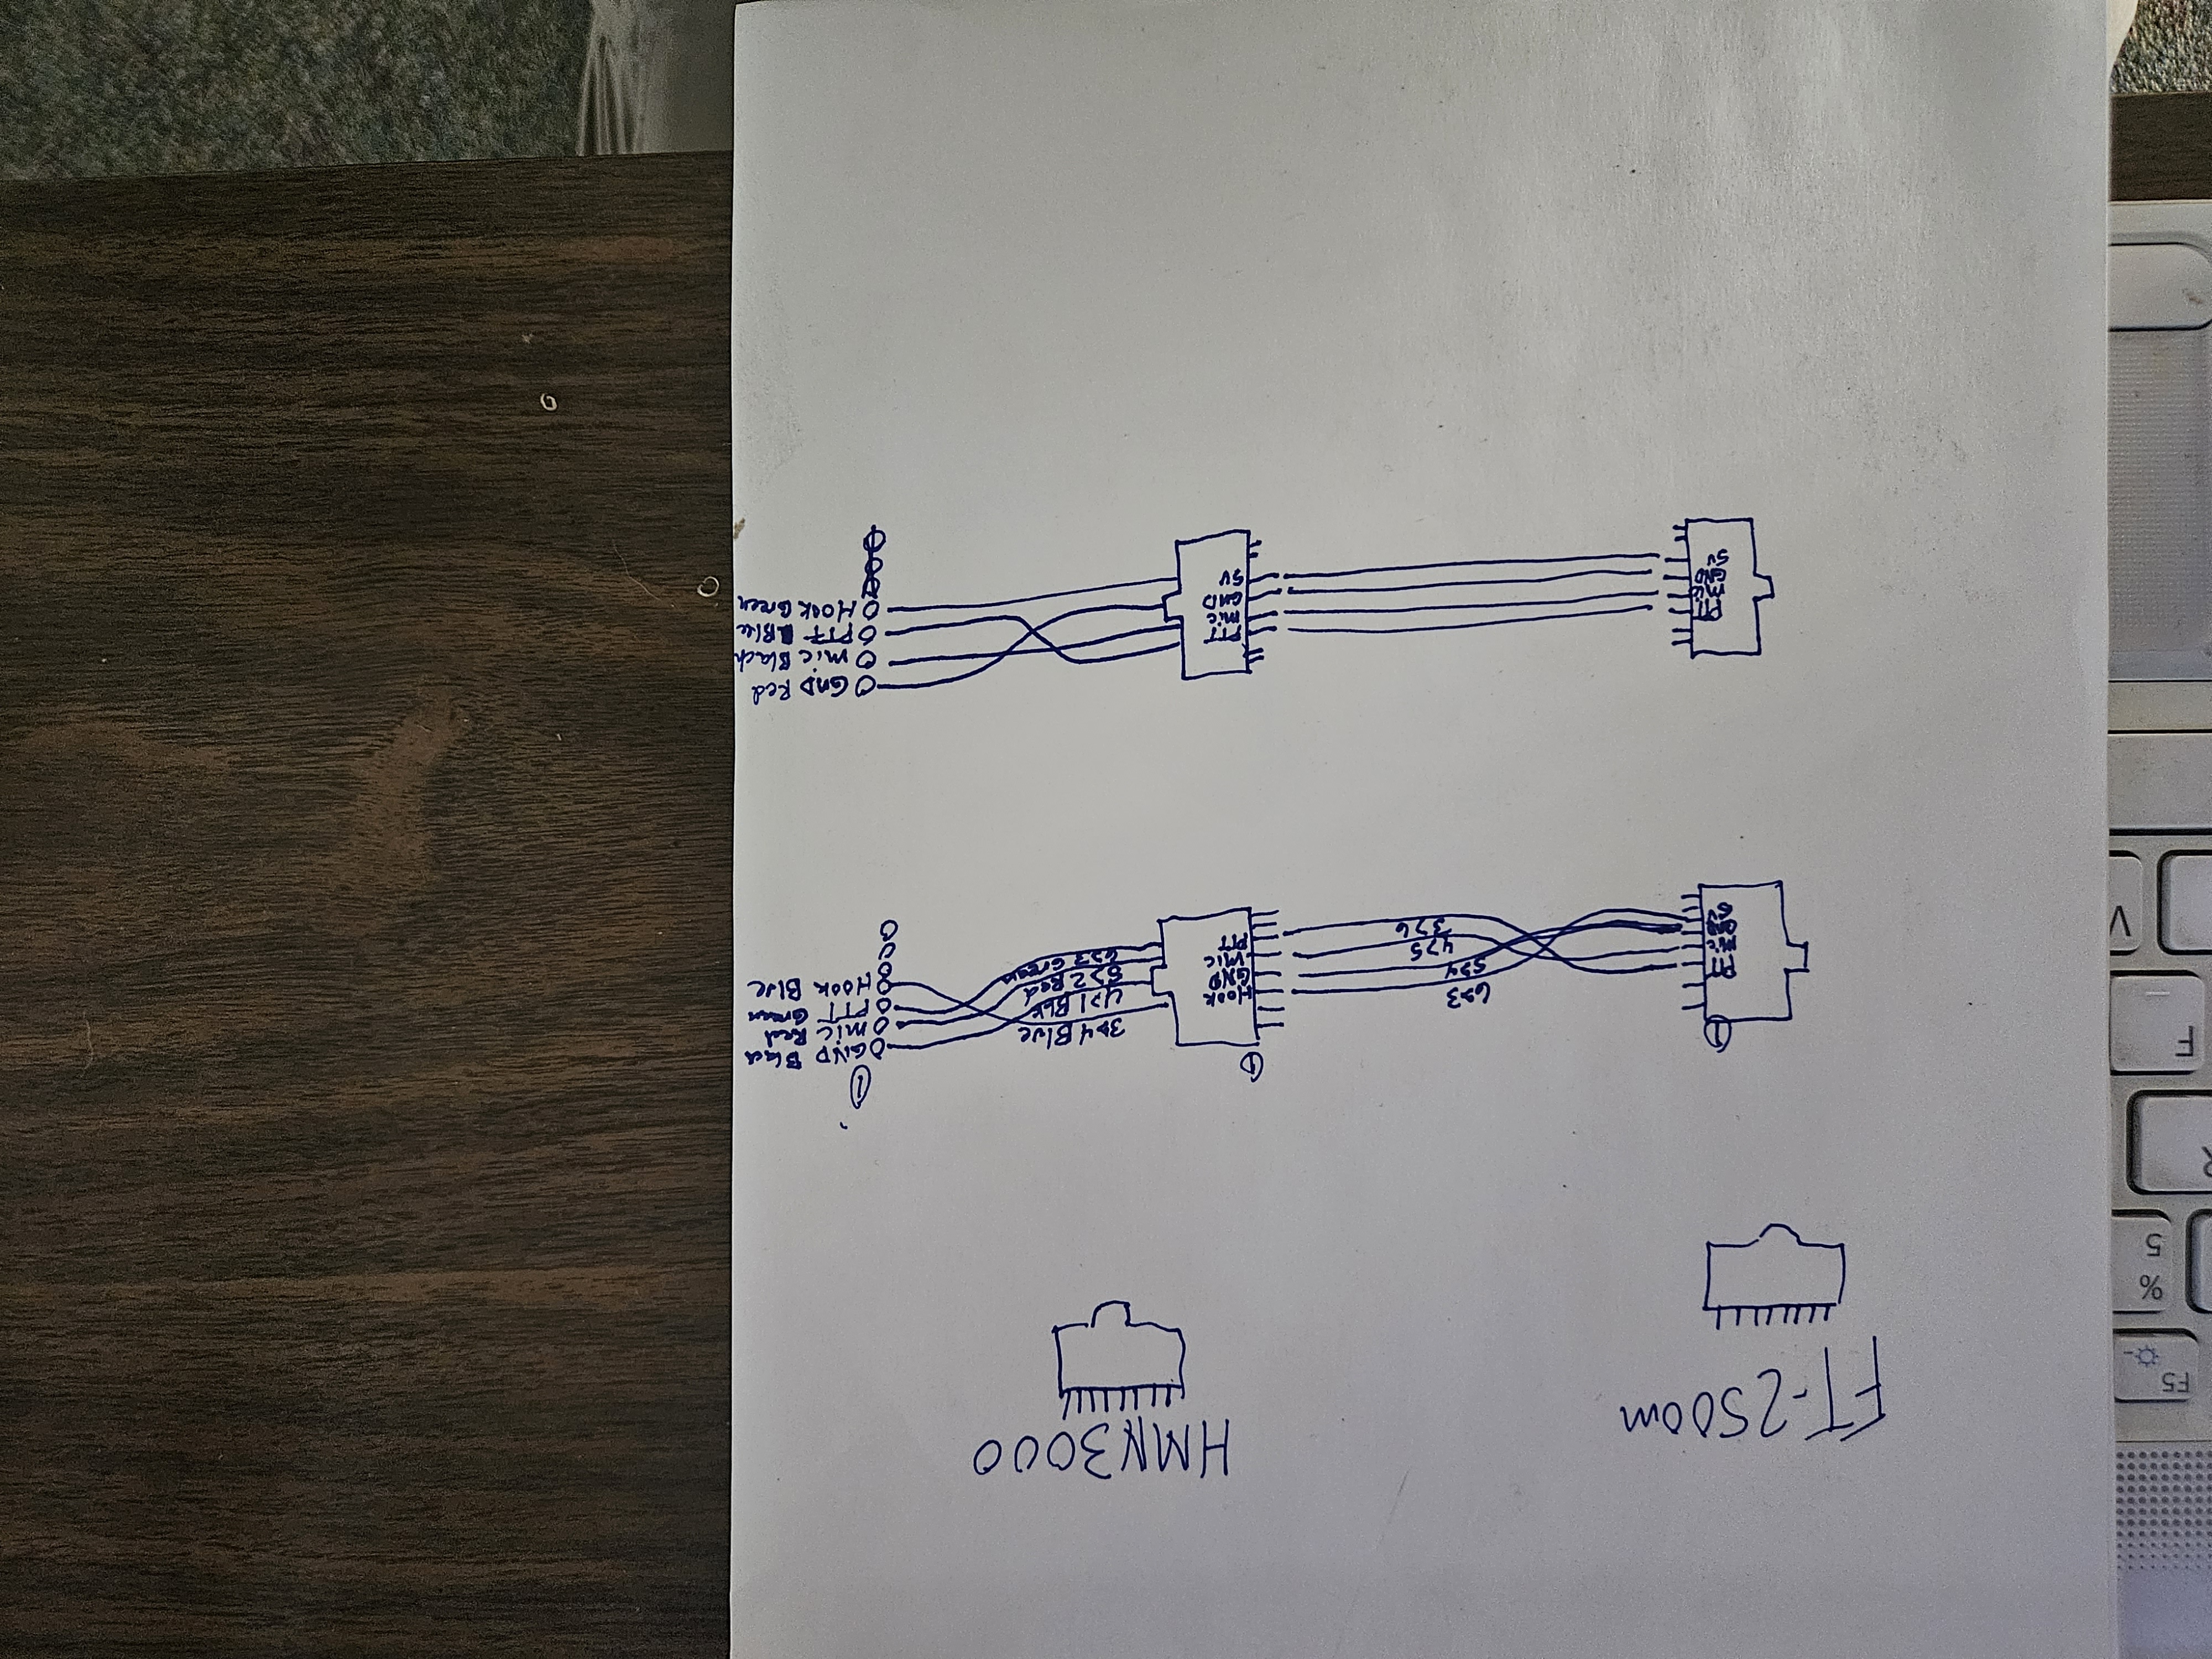 FT-2500m
HMN3000
F5
%
5
R
F
V
①
PTT
Mic
GND
5V
6>3
5>4
4>5
3>6
①
Hook
GND
Mic
PTT
3>4 Blue
4>1 Blk
5>2 Red
6>3 Green
①
GND Black
Mic Red
PTT Green
Hook Blue
PTT
Mic
GND
5V
PTT
Mic
GND
5V
GND Red
Mic Black
PTT Blue
Hook Green